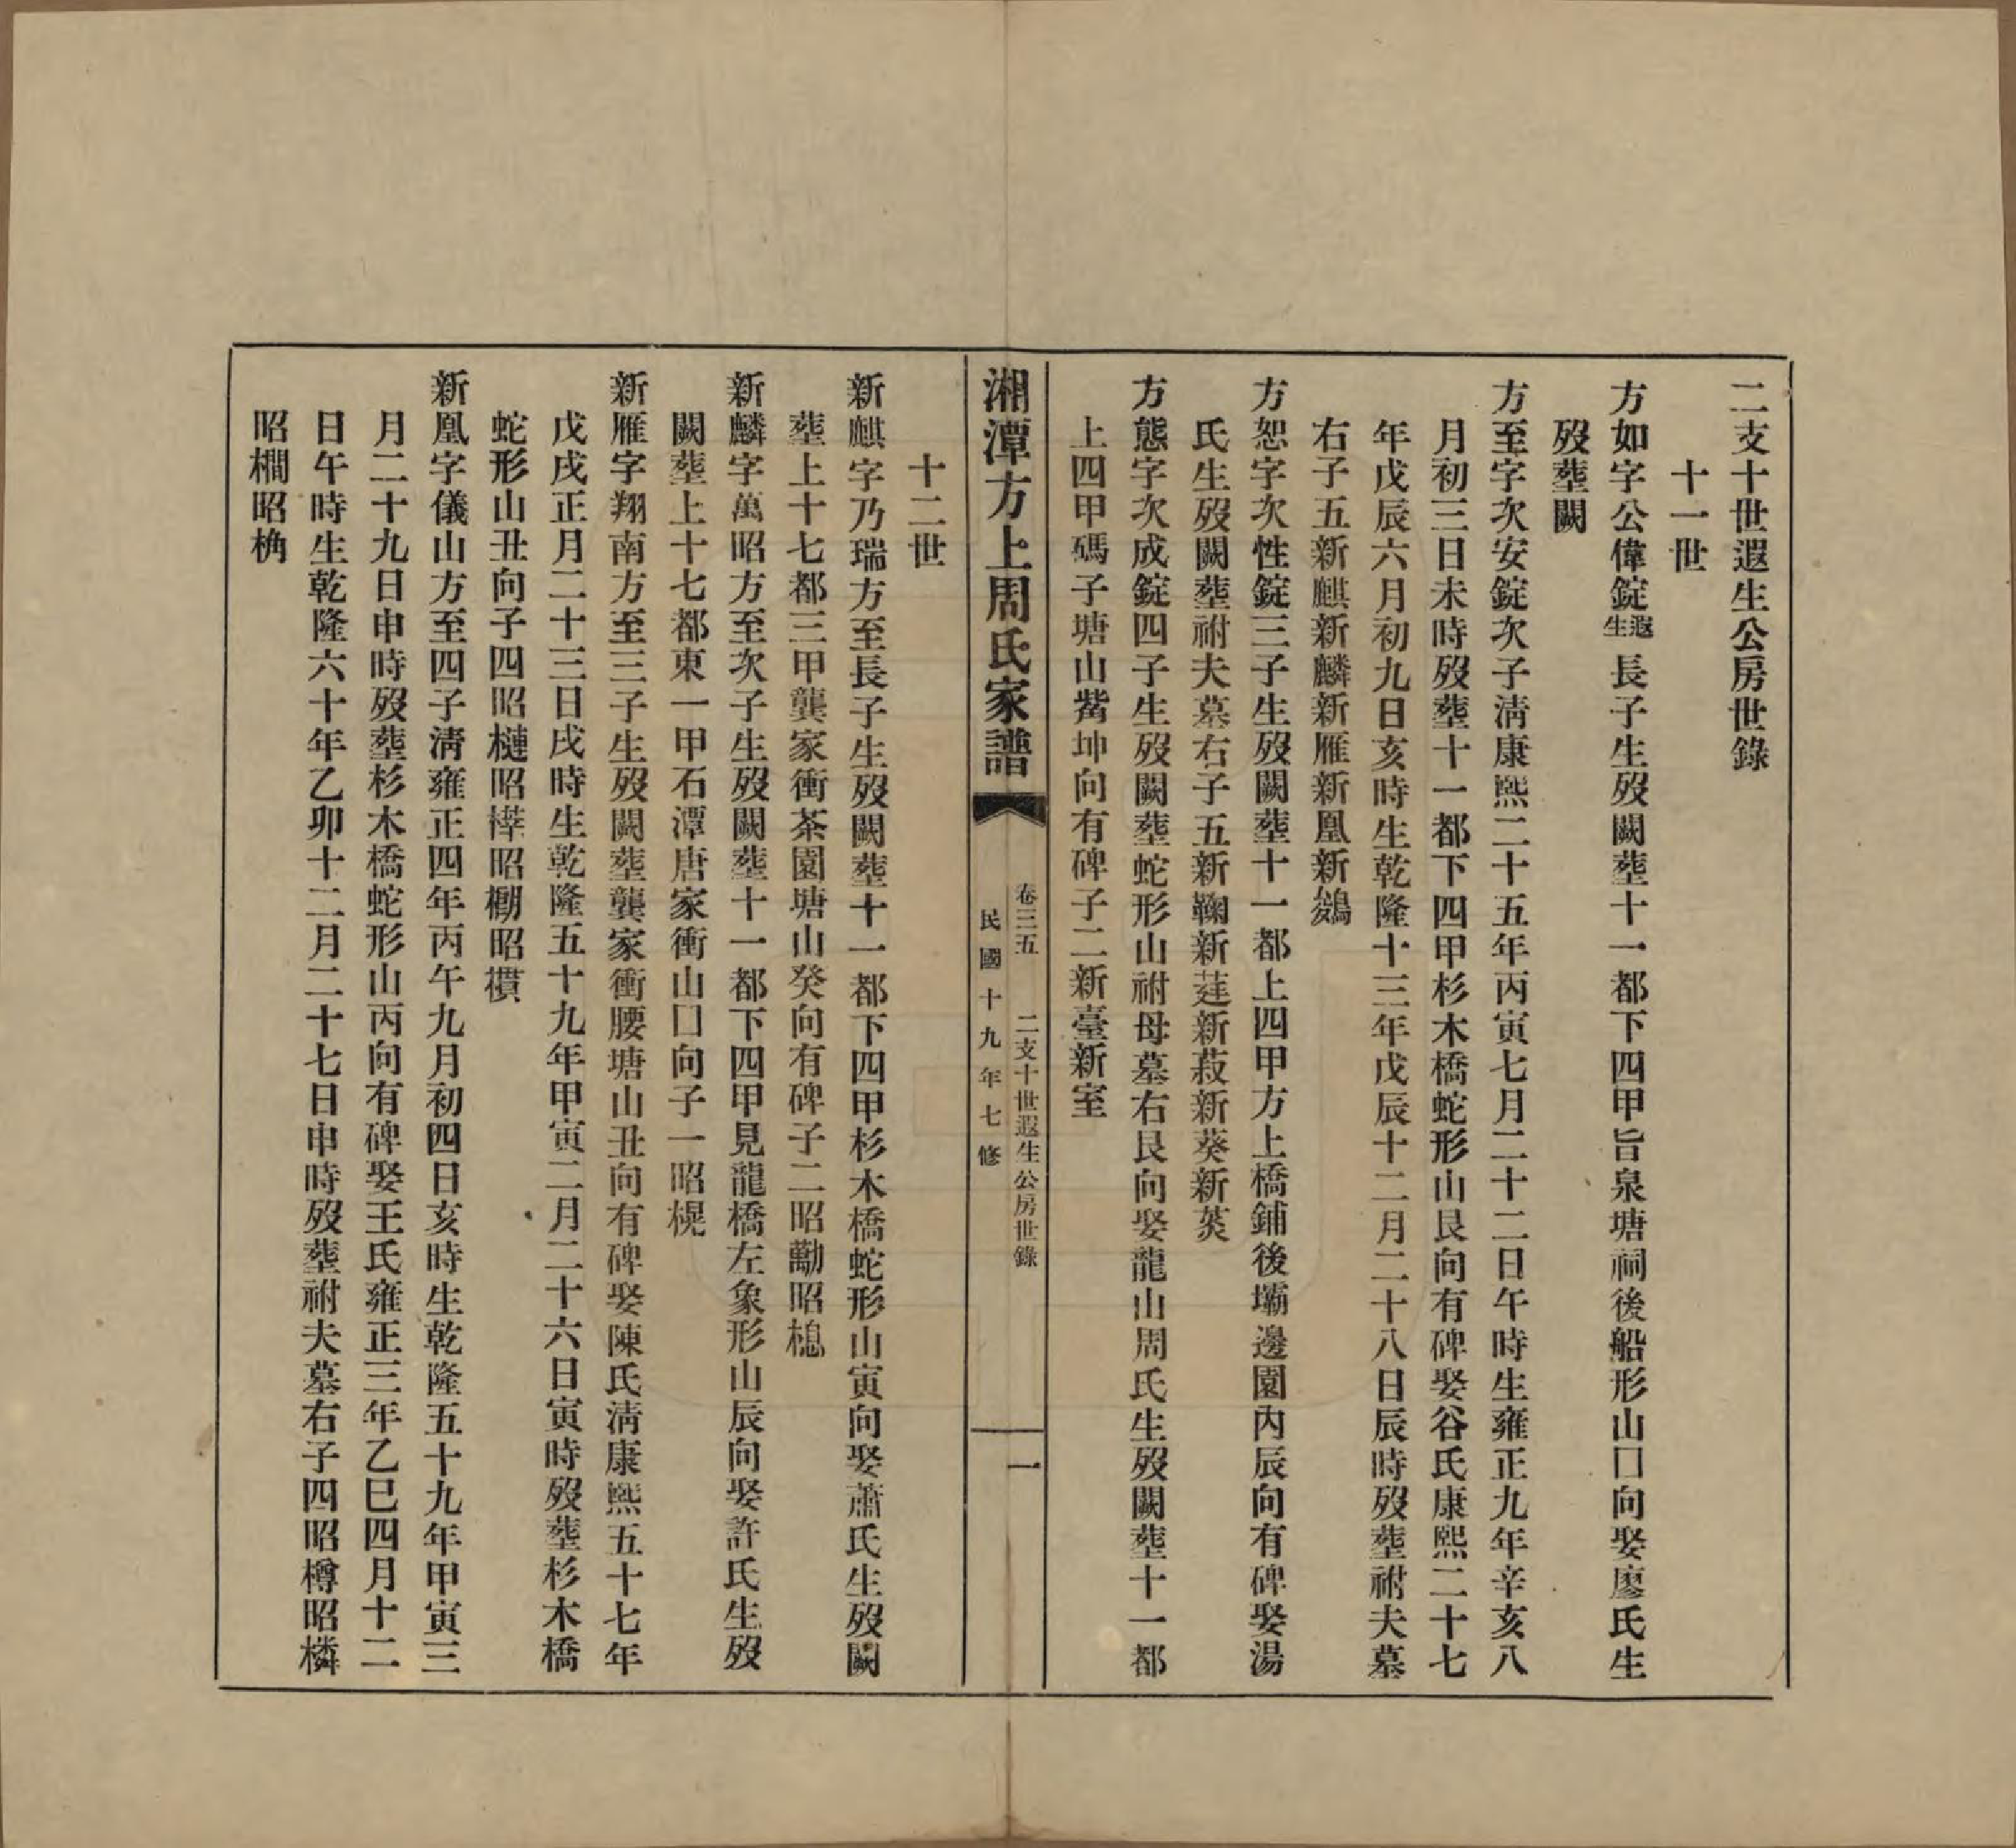 二支十世遐生公房世錄
十一世
方如字公偉錠遐生長子生歿闕塟十一都下四甲旨泉塘祠後船形山囗向娶廖氏生
歿塟闕
方至字次安錠次子淸康熙二十五年丙寅七月二十二日午時生雍正九年辛亥八
月初三日未時歿塟十一都下四甲杉木橋蛇形山艮向有碑娶谷氏康熙二十七
年戊辰六月初九日亥時生乾隆十三年戊辰十二月二十八日辰時歿塟祔夫墓
右子五新麒新麟新雁新凰新鷄
方恕字次性錠三子生歿闕塟十一都上四甲方上橋鋪後壩邊園內辰向有碑娶湯
氏生歿闕塟祔夫墓右子五新鞠新莛新菽新葵新
方態字次成錠四子生歿闕塟蛇形山祔母墓右艮向娶龍山周氏生歿闕塟十一都
上四甲碼子塘山觜坤向有碑子二新臺新室
湘潭方上周氏家譜
卷三五 二支十世遐生公房世錄
民國十九年七修
一
十二世
新麒字乃瑞方至長子生歿闕塟十一都下四甲杉木橋蛇形山寅向娶蕭氏生歿闕
塟上十七都三甲龔家衝茶園塘山癸向有碑子二昭勱昭樬
新麟字萬昭方至次子生歿闕塟十一都下四甲見龍橋左象形山辰向娶許氏生歿
闕塟上十七都東一甲石潭唐家衝山囗向子一昭榥
新雁字翔南方至三子生歿闕塟龔家衝腰塘山丑向有碑娶陳氏淸康熙五十七年
戊戌正月二十三日戌時生乾隆五十九年甲寅二月二十六日寅時歿塟杉木橋
蛇形山丑向子四昭槤昭榁昭橍昭樌
新凰字儀山方至四子淸雍正四年丙午九月初四日亥時生乾隆五十九年甲寅三
月二十九日申時歿塟杉木橋蛇形山丙向有碑娶王氏雍正三年乙巳四月十二
日午時生乾隆六十年乙卯十二月二十七日申時歿塟祔夫墓右子四昭樽昭橉
昭橺昭桷